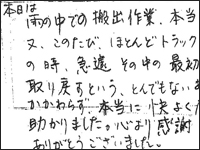 本日は
雨の中での搬出作業、本当
又、このたび、ほとんどトラック
の時、急遽 その中の最初
取り戻すという、とんでもない
かかわらず、本当に快よく
助かりました。心より感謝
ありがとうございました。